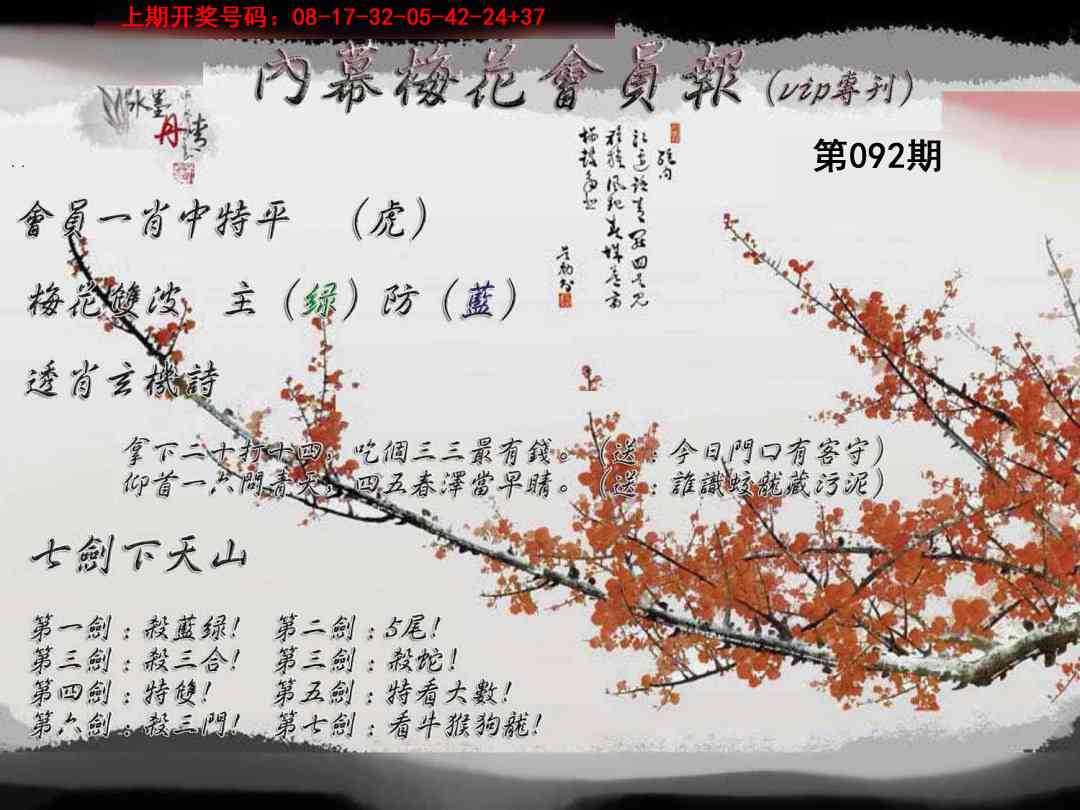 上期开奖号码：08-17-32-05-42-24+37
內幕梅花會員報（vip專刊）
水墨
丹青
第092期
會員一肖中特平　（虎）
梅花雙波　主（绿）防（藍）
透肖玄機詩
拿下二十打十四，吃個三三最有錢。（送：今日門口有客守）
仰首一六問青天，四五春澤當早晴。（送：誰識蛟龍藏污泥）
七劍下天山
第一劍：殺藍绿！　第二劍：5尾！
第三劍：殺三合！　第三劍：殺蛇！
第四劍：特雙！　第五劍：特看大數！
第六劍：殺三門！　第七劍：看牛猴狗龍！